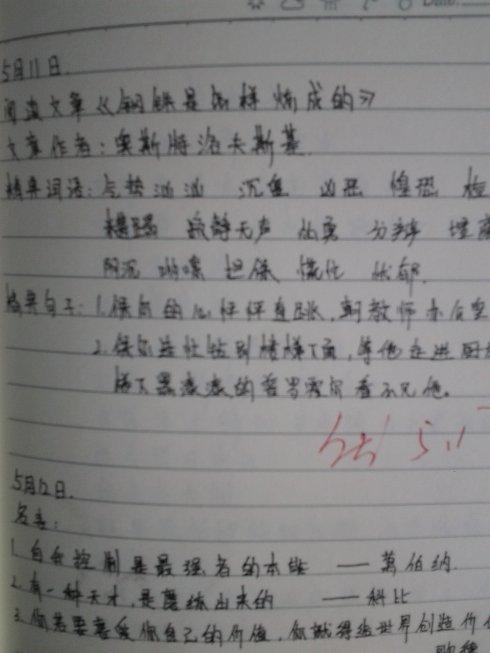 Date:
5月11日.
阅读文章《钢铁是怎样炼成的》
文章作者:奥斯特洛夫斯基
精美词语: 沉重 凶恶 惶恐
寂静无声 分辨
阴沉 担保 慌忙 忧郁.
精美句子:1.保尔的心怦怦直跳,朝教师办公室
2.保尔连忙钻到楼梯下面,等他走进厨房
梯下黑 的 看不见他.
5.1
5月12日.
名言:
1.自我控制是最强者的本能 —— 萧伯纳.
2.有一种天才,是磨练出来的 —— 科比
3.你若要喜爱你自己的价值,你就得给世界创造价值
歌德